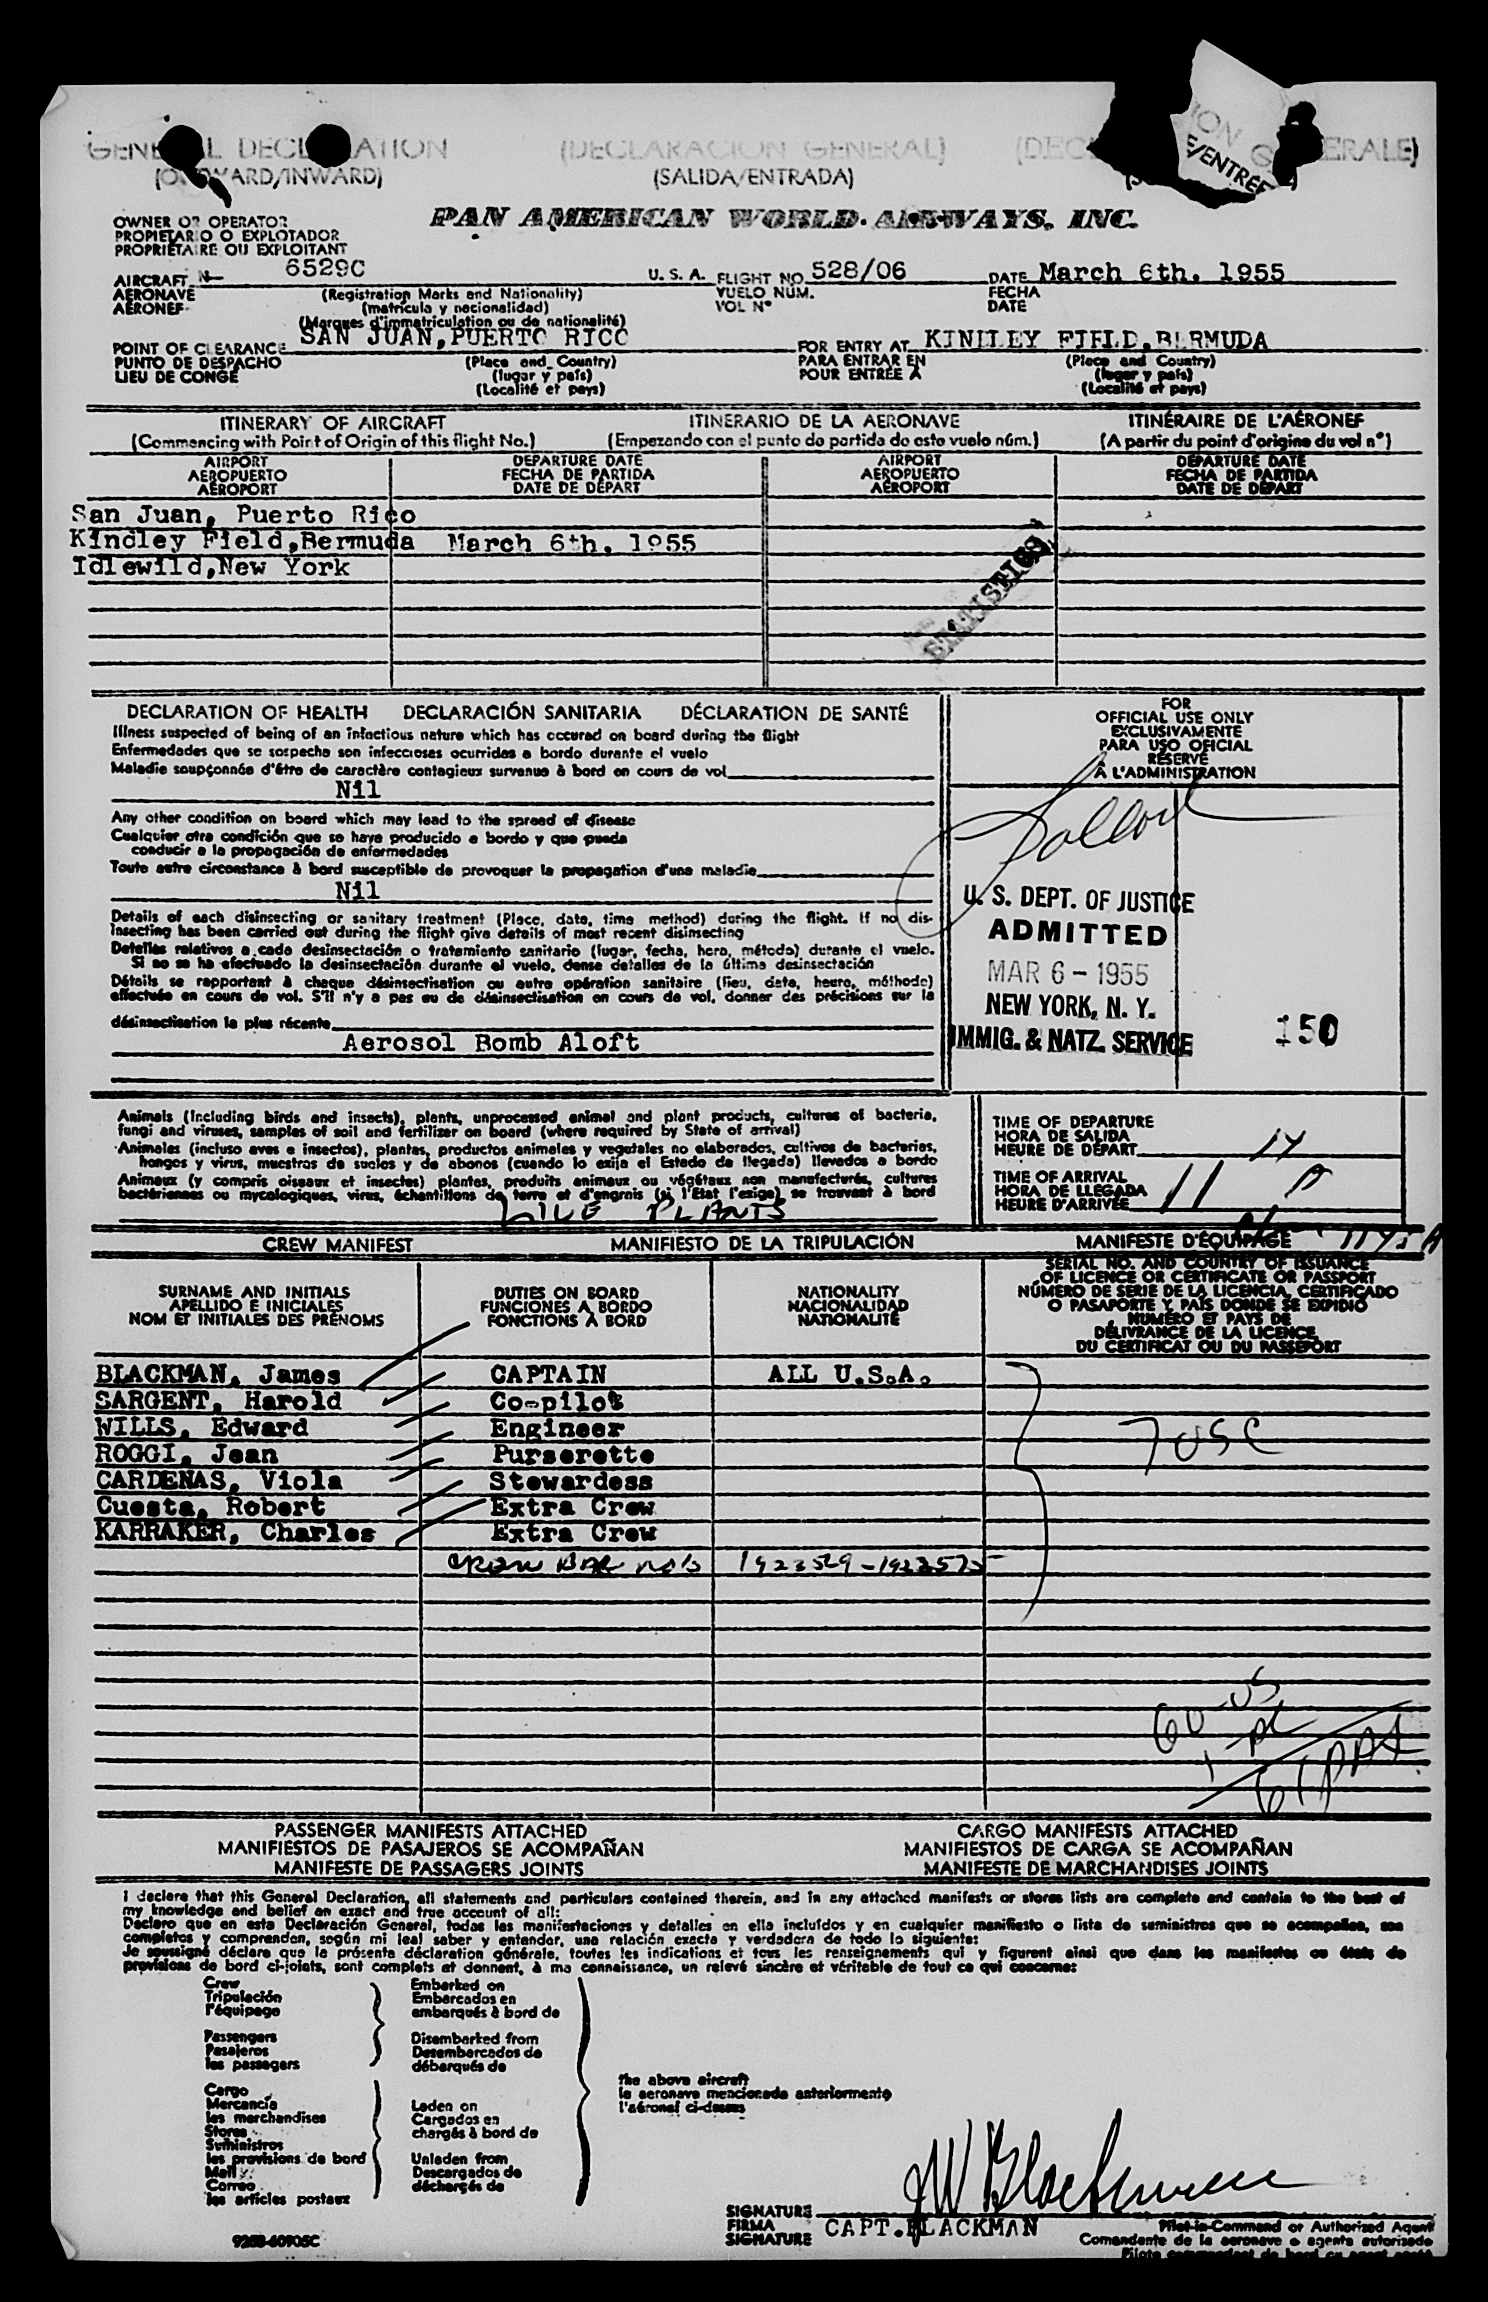 GENERAL DECLARATION (DECLARACION GENERAL)
(OUTWARD/INWARD) (SALIDA/ENTRADA)
OWNER OR OPERATOR PAN AMERICAN WORLD AIRWAYS, INC.
PROPIETARIO O EXPLOTADOR
PROPRIÉTAIRE OU EXPLOITANT
AIRCRAFT N- 6529C U. S. A. FLIGHT NO. 528/06 DATE March 6th. 1955
AERONAVE (Registration Marks and Nationality) VUELO NÚM. FECHA
AÉRONEF (matrícula y nacionalidad) VOL N° DATE
(Marques d'immatriculation ou de nationalité)
POINT OF CLEARANCE SAN JUAN, PUERTO RICO FOR ENTRY AT KINDLEY FIELD, BERMUDA
PUNTO DE DESPACHO (Place and Country) PARA ENTRAR EN (Place and Country)
LIEU DE CONGÉ (lugar y país) POUR ENTRÉE À (lugar y país)
(Localité et pays) (Localité et pays)
ITINERARY OF AIRCRAFT ITINERARIO DE LA AERONAVE ITINÉRAIRE DE L'AÉRONEF
(Commencing with Point of Origin of this flight No.) (Empezando con el punto de partida de este vuelo núm.) (A partir du point d'origine du vol n°)
AIRPORT DEPARTURE DATE AIRPORT DEPARTURE DATE
AEROPUERTO FECHA DE PARTIDA AEROPUERTO FECHA DE PARTIDA
AÉROPORT DATE DE DÉPART AÉROPORT DATE DE DÉPART
San Juan, Puerto Rico
Kindley Field,Bermuda March 6th. 1955
Idlewild,New York
DECLARATION OF HEALTH DECLARACIÓN SANITARIA DÉCLARATION DE SANTÉ
Illness suspected of being of an infectious nature which has occured on board during the flight
Enfermedades que se sospecha son infecciosas ocurridas a bordo durante el vuelo
Maladie soupçonnée d'être de caractère contagieux survenue à bord en cours de vol
Nil
Any other condition on board which may lead to the spread of disease
Cualquier otra condición que se haya producido a bordo y que pueda
conducir a la propagación de enfermedades
Toute autre circonstance à bord susceptible de provoquer la propagation d'une maladie
Nil
Details of each disinsecting or sanitary treatment (Place, date, time method) during the flight. If no dis-
insecting has been carried out during the flight give details of most recent disinsecting
Detalles relativos a cada desinsectación o tratamiento sanitario (lugar, fecha, hora, método) durante el vuelo.
Si no se ha efectuado la desinsectación durante el vuelo, dense detalles de la última desinsectación
Détails se rapportant à chaque désinsectisation ou autre opération sanitaire (lieu, date, heure, méthode)
effectuée en cours de vol. S'il n'y a pas eu de désinsectisation en cours de vol, donner des précisions sur la
désinsectisation la plus récente
Aerosol Bomb Aloft
FOR
OFFICIAL USE ONLY
EXCLUSIVAMENTE
PARA USO OFICIAL
RÉSERVÉ
À L'ADMINISTRATION
U. S. DEPT. OF JUSTICE
ADMITTED
MAR 6 - 1955
NEW YORK, N. Y.
IMMIG. & NATZ. SERVICE
150
Animals (Including birds and insects), plants, unprocessed animal and plant products, cultures of bacteria,
fungi and viruses, samples of soil and fertilizer on board (where required by State of arrival)
Animales (incluso aves e insectos), plantas, productos animales y vegetales no elaborados, cultivos de bacterias,
hongos y virus, muestras de suelos y de abonos (cuando lo exija el Estado de llegada) llevados a bordo
Animaux (y compris oiseaux et insectes) plantes, produits animaux ou végétaux non manufacturés, cultures
bactériennes ou mycologiques, virus, échantillons de terre et d'engrais (si l'Etat l'exige) se trouvant à bord
LIVE PLANTS
TIME OF DEPARTURE
HORA DE SALIDA
HEURE DE DÉPART
TIME OF ARRIVAL
HORA DE LLEGADA
HEURE D'ARRIVÉE
CREW MANIFEST MANIFIESTO DE LA TRIPULACIÓN MANIFESTE D'ÉQUIPAGE
SURNAME AND INITIALS DUTIES ON BOARD NATIONALITY SERIAL NO. AND COUNTRY OF ISSUANCE
APELLIDO E INICIALES FUNCIONES A BORDO NACIONALIDAD OF LICENCE OR CERTIFICATE OR PASSPORT
NOM ET INITIALES DES PRÉNOMS FONCTIONS À BORD NATIONALITÉ NÚMERO DE SERIE DE LA LICENCIA, CERTIFICADO
O PASAPORTE Y PAÍS DONDE SE EXPIDIÓ
NUMÉRO ET PAYS DE
DÉLIVRANCE DE LA LICENCE,
DU CERTIFICAT OU DU PASSEPORT
BLACKMAN, James CAPTAIN ALL U.S.A.
SARGENT, Harold Co-pilot
WILLS, Edward Engineer
ROGGI, Jean Purserette
CARDENAS, Viola Stewardess
Cuesta, Robert Extra Crew
KARRAKER, Charles Extra Crew
7 USC
60 US
61
PASSENGER MANIFESTS ATTACHED CARGO MANIFESTS ATTACHED
MANIFIESTOS DE PASAJEROS SE ACOMPAÑAN MANIFIESTOS DE CARGA SE ACOMPAÑAN
MANIFESTE DE PASSAGERS JOINTS MANIFESTE DE MARCHANDISES JOINTS
I declare that this General Declaration, all statements and particulars contained therein, and in any attached manifests or stores lists are complete and contain to the best of
my knowledge and belief an exact and true account of all:
Declaro que en esta Declaración General, todas las manifestaciones y detalles en ella incluídos y en cualquier manifiesto o lista de suministros que se acompañen, son
completos y comprenden, según mi leal saber y entender, una relación exacta y verdadera de todo lo siguiente:
Je soussigné déclare que la présente déclaration générale, toutes les indications et tous les renseignements qui y figurent ainsi que dans les manifestes ou états de
provisions de bord ci-joints, sont complets et donnent, à ma connaissance, un relevé sincère et véritable de tout ce qui concerne:
Crew Embarked on
Tripulación Embarcados en
l'équipage embarqués à bord de
Passengers Disembarked from
Pasajeros Desembarcados de
les passagers débarqués de
the above aircraft
la aeronave mencionada anteriormente
l'aéronef ci-dessus
Cargo
Mercancía Laden on
les marchandises Cargados en
Stores chargés à bord de
Suministros
les provisions de bord Unladen from
Mail Descargados de
Correo déchargés de
les articles postaux
JW Blackman
SIGNATURE
FIRMA CAPT.BLACKMAN Pilot-in-Command or Authorized Agent
SIGNATURE Comandante de la aeronave o agente autorizado